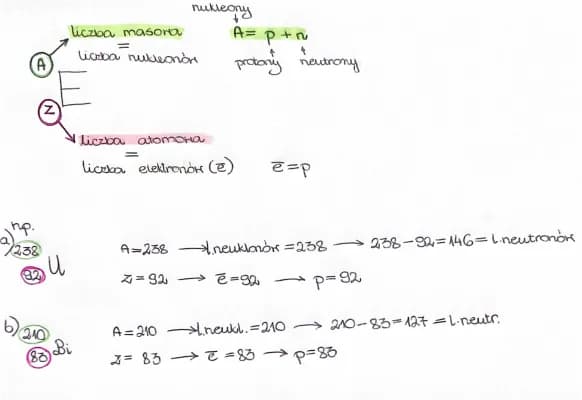 nukleony
liczba masowa A = p + n
=
liczba nukleonów protony neutrony
A
E
Z
liczba atomowa
=
liczba elektronów (e̅) e̅ = p
np.
a) 238 92 U A = 238 → l. neuklonów = 238 → 238 - 92 = 146 = l. neutronów
Z = 92 → e̅ = 92 → p = 92
b) 210 83 Bi A = 210 → l. neukl. = 210 → 210 - 83 = 127 = l. neutr.
Z = 83 → e̅ = 83 → p = 83